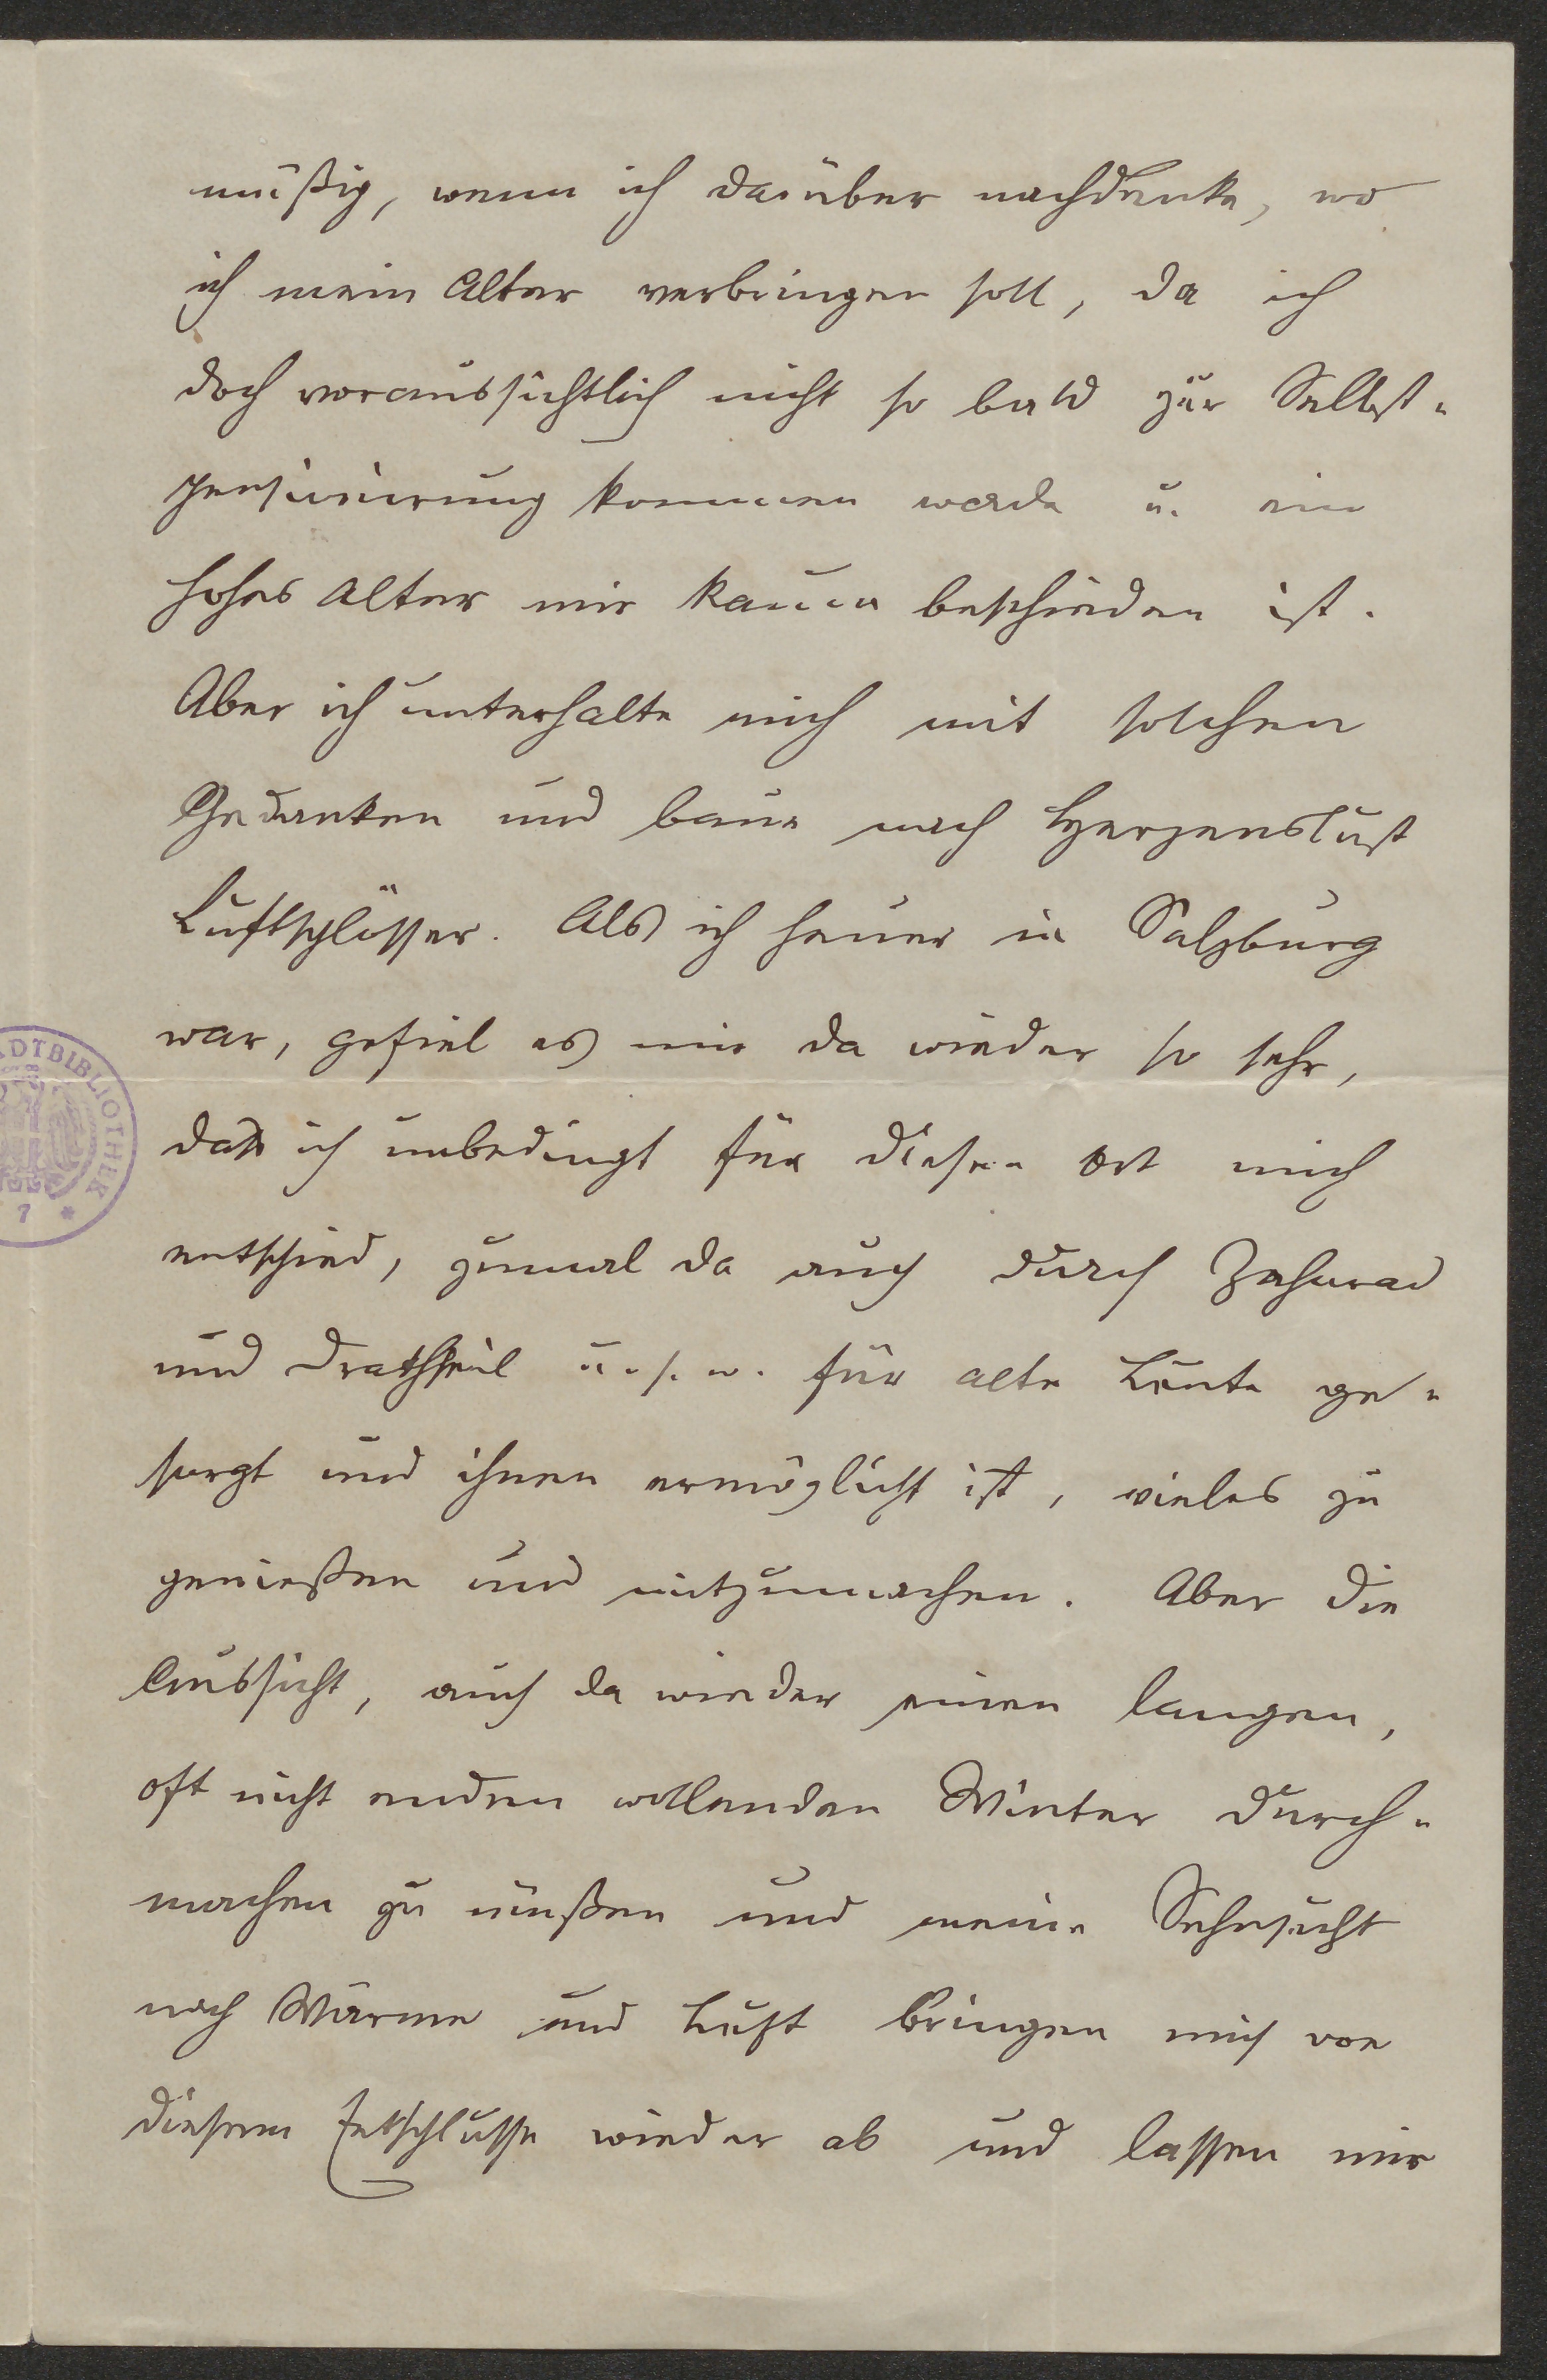 müßig, wenn ich darüber nachdenke, wo
ich mein Alter verbringen soll, da ich
doch voraussichtlich nicht so bald zur Selbst-
pensionierung kommen werde u. ein
hohes Alter mir kaum beschieden ist.
Aber ich unterhalte mich mit solchen
Gedanken und baue nach Herzenslust
Luftschlösser. Als ich heuer in Salzburg
war, gefiel es mir da wieder so sehr,
daß ich unbedingt für diesen Ort mich
entschied, zumal da auch durch Zahnrad
und Drathseil u. s. w. für alte Leute ge-
sorgt und ihnen ermöglicht ist, vieles zu
genießen und mitzumachen. Aber die
Aussicht, auch da wieder einen langen,
oft nicht enden wollenden Winter durch-
machen zu müßen und meine Sehnsucht
nach Wärme und Luft bringen mich von
diesem Entschlusse wieder ab und lassen mir
ADTBIBLIOTHEK
7 *